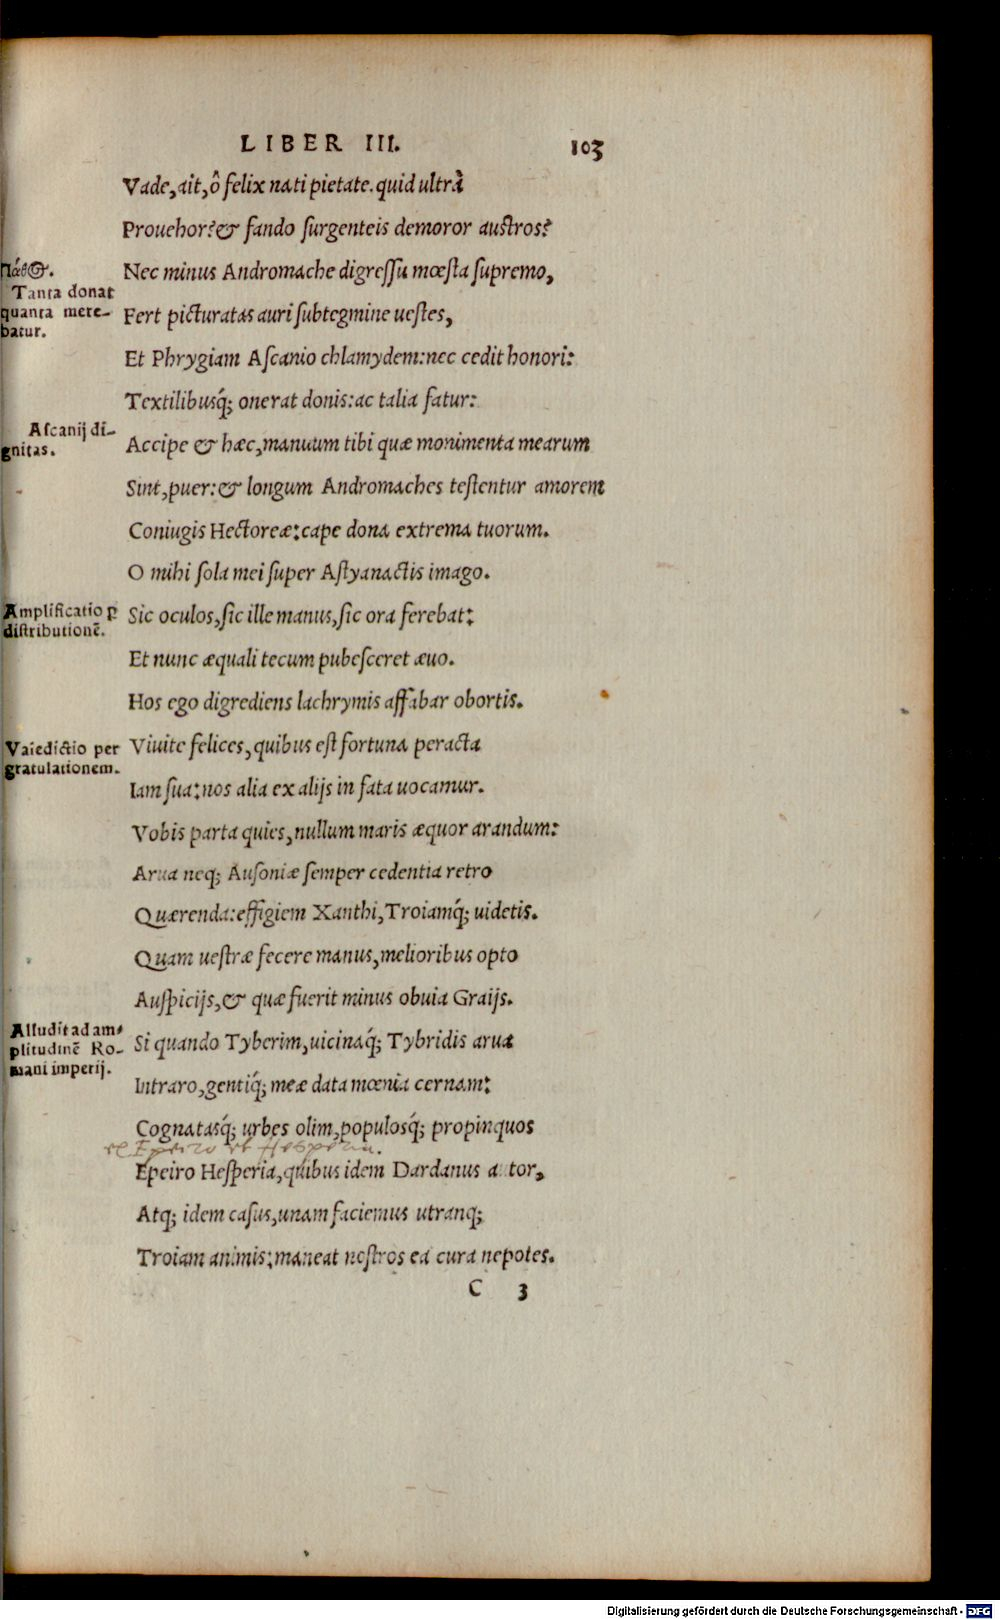 LIBER III. 103
Vade, ait, ô felix nati pietate. quid ultrà
Prouehor? & fando surgenteis demoror austros?
Πάθος.
Nec minus Andromache digressu mœsta supremo,
Tanta donat
quanta mere-
batur.
Fert picturatas auri subtegmine uestes,
Et Phrygiam Ascanio chlamydem: nec cedit honori:
Textilibusq́; onerat donis: ac talia fatur:
Ascanij di-
gnitas.
Accipe & hæc, manuum tibi quæ monimenta mearum
Sint, puer: & longum Andromaches testentur amorem
Coniugis Hectoreæ: cape dona extrema tuorum.
O mihi sola mei super Astyanactis imago.
Amplificatio ꝑ
distributionē.
Sic oculos, sic ille manus, sic ora ferebat:
Et nunc æquali tecum pubesceret æuo.
Hos ego digrediens lachrymis affabar obortis.
Valedictio per
gratulationem.
Viuite felices, quibus est fortuna peracta
Iam sua: nos alia ex alijs in fata uocamur.
Vobis parta quies, nullum maris æquor arandum:
Arua neq; Ausoniæ semper cedentia retro
Quærenda: effigiem Xanthi, Troiamq́; uidetis.
Quam uestræ fecere manus, melioribus opto
Auspicijs, & quæ fuerit minus obuia Graijs.
Alludit ad am-
plitudinē Ro-
mani imperij.
Si quando Tyberim, uicinaq́; Tybridis arua
Intraro, gentiq́; meæ data mœnia cernam:
Cognatasq́; urbes olim, populosq́; propinquos
Epeiro et Hesperia.
Epeiro Hesperia, quibus idem Dardanus a tor,
Atq; idem casus, unam faciemus utranq;
Troiam animis: maneat nostros ea cura nepotes.
C 3
Digitalisierung gefördert durch die Deutsche Forschungsgemeinschaft - DFG